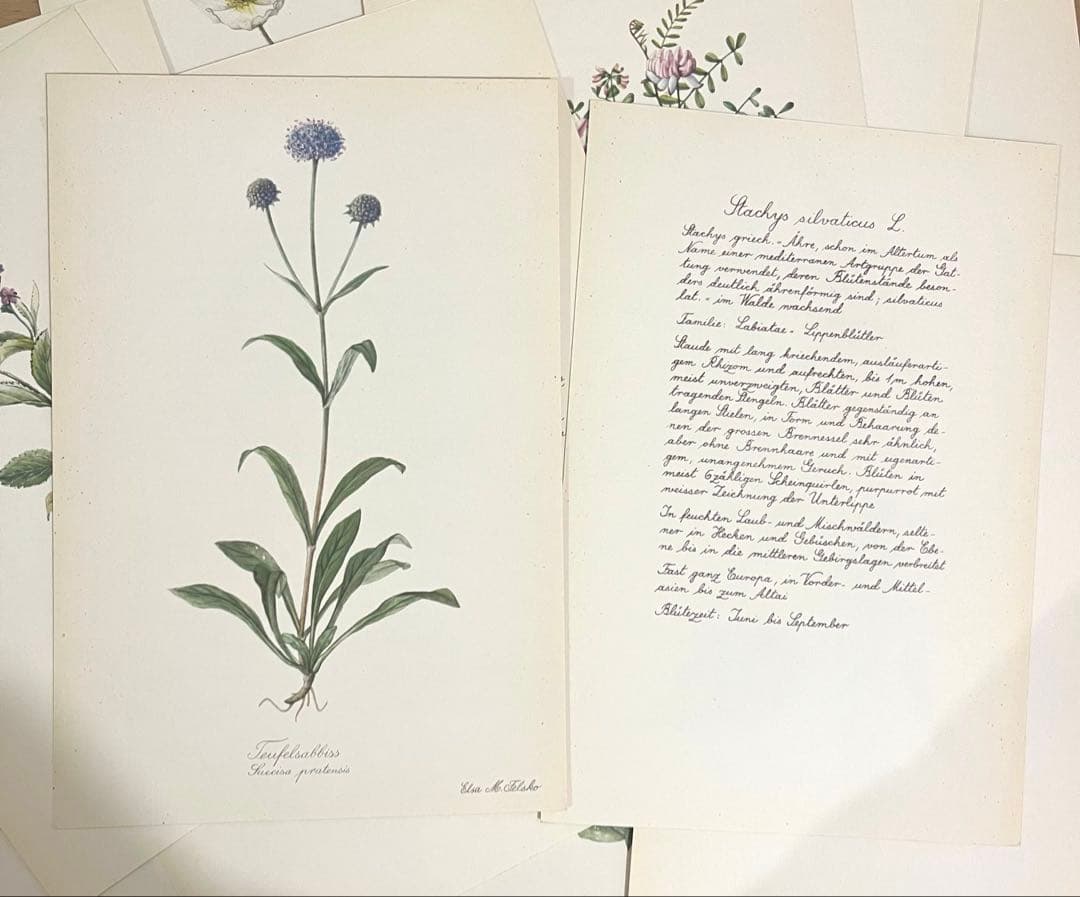 Teufelsabbiss
Succisa pratensis
Elsa M. Felsko
Stachys silvaticus L.
Stachys griech. = Ähre, schon im Altertum als
Name einer mediterranen Artgruppe der Gat-
tung verwendet, deren Blütenstände beson-
ders deutlich ährenförmig sind; silvaticus
lat. = im Walde wachsend
Familie: Labiatae - Lippenblütler
Staude mit lang kriechendem, ausläuferarti-
gem Rhizom und aufrechten, bis 1m hohen,
meist unverzweigten, Blätter und Blüten
tragenden Stengeln. Blätter gegenständig an
langen Stielen, in Form und Behaarung de-
nen der grossen Brennessel sehr ähnlich,
aber ohne Brennhaare und mit eigenarti-
gem, unangenehmem Geruch. Blüten in
meist 6zähligen Scheinquirlen, purpurrot mit
weisser Zeichnung der Unterlippe
In feuchten Laub- und Mischwäldern, selte-
ner in Hecken und Gebüschen, von der Ebe-
ne bis in die mittleren Gebirgslagen verbreitet
Fast ganz Europa, in Vorder- und Mittel-
asien bis zum Altai
Blütezeit: Juni bis September